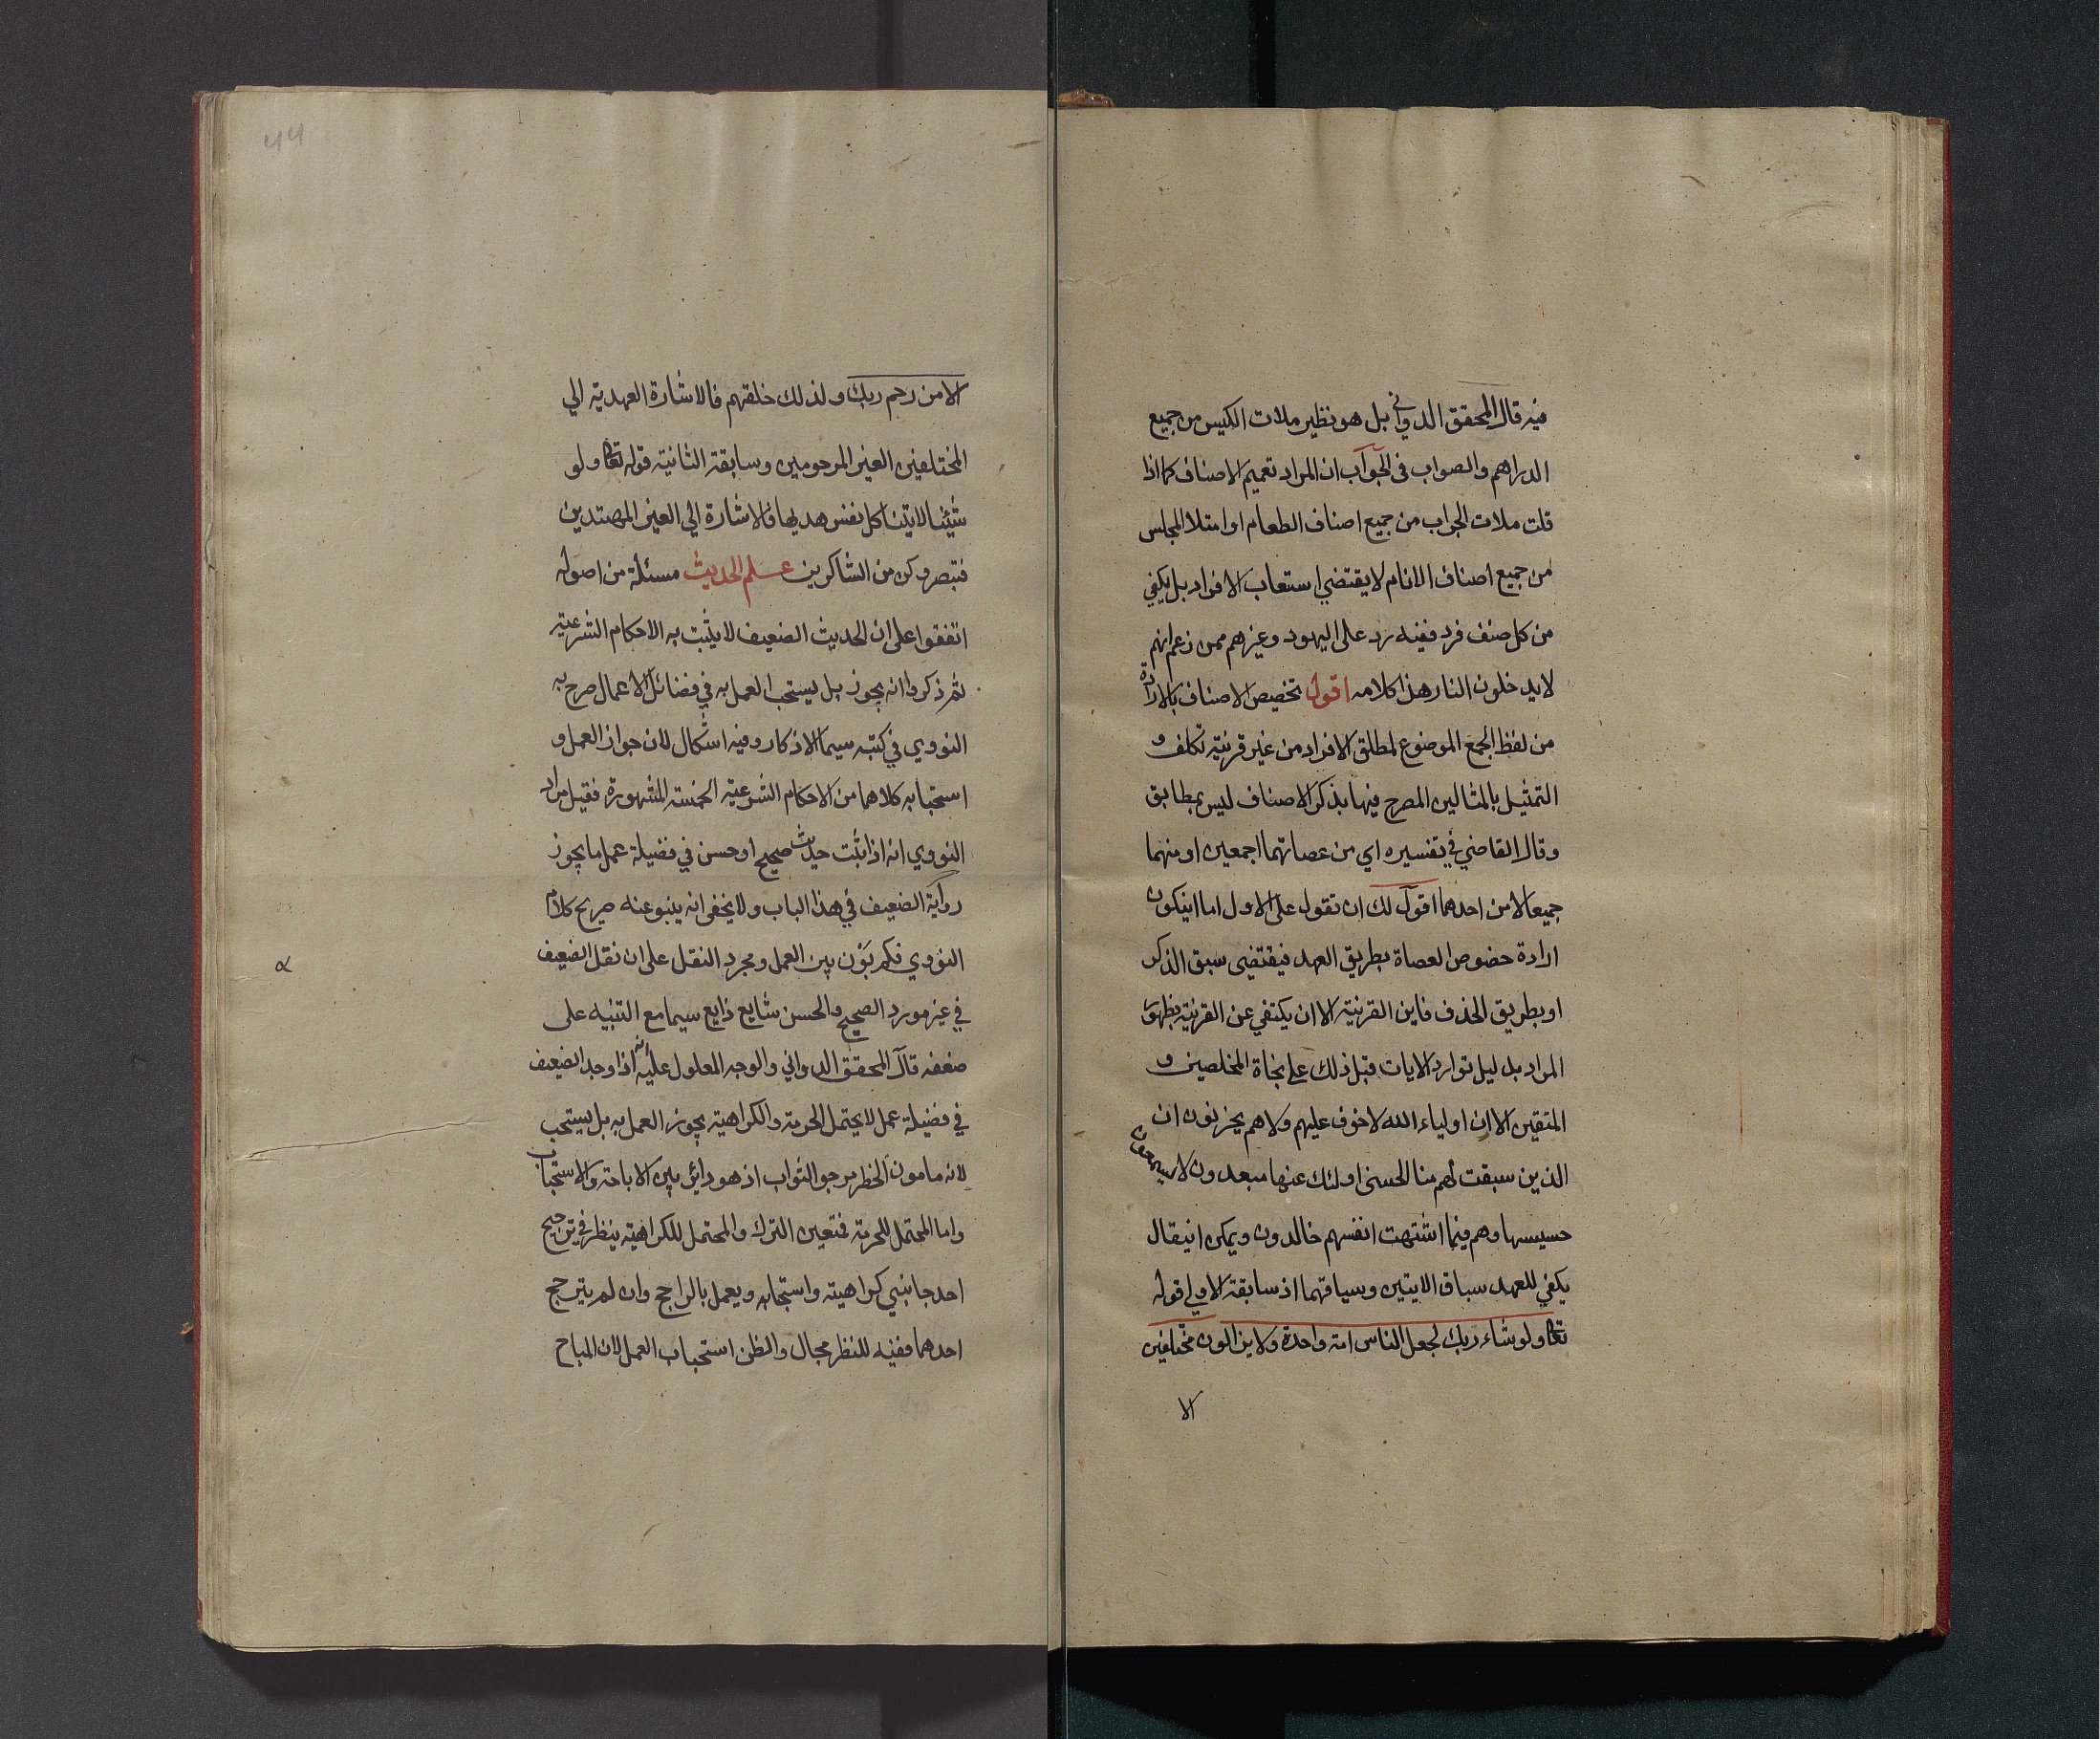 فيه قال المحقق الدواني بل هو نظير ملات الكيس من جميع
الدراهم والصواب فى الجواب ان المراد تعميم الاصناف كما اذا
قلت ملات الجراب من جميع اصناف الطعام او امتلا المجلس
من جميع اصناف الانام لا يقتضي استعاب الافراد بل يكفي
من كل صنف فرد ففيه رد على اليهود وغيرهم ممن زعم انهم
لا يدخلون النار هذا كلامه اقول تخصيص الاصناف بالارادة
من لفظ الجمع الموضوع لمطلق الافراد من غير قرينة تكلف و
التمثيل بالمثالين المصرح فيها بذكر الاصناف ليس بمطابق
وقال القاضي في تفسيره اي من عصاتهما اجمعين او منهما
جميعا لا من احدهما اقول لك ان تقول على الاول اما اينكون
ارادة خصوص العصاة بطريق العهد فيقتضى سبق الذكر
او بطريق الحذف فاين القرينة الا ان يكتفي عن القرينة بظهور
المراد بدليل توارد الايات قبل ذلك على نجاة المخلصين و
المتقين الا ان اولياء الله لا خوف عليهم ولا هم يحزنون ان
الذين سبقت لهم منا الحسنى اولئك عنها مبعدون لا يسمعون
حسيسها وهم فيما اشتهت انفسهم خالدون ويمكن اينقال
يكفي للعهد سباق الايتين وسياقهما اذ سابقة الاولى قوله
تعالى ولو شاء ربك لجعل الناس امة واحدة ولا يزالون مختلفين
الا
٤٤
الا من رحم ربك ولذلك خلقهم فالاشارة العهدية الي
المختلفين الغير المرحومين وسابقة الثانية قوله تعالى ولو
شئنا لاتينا كل نفس هديها فالاشارة الى الغير المهتدين
فتبصر وكن من الشاكرين علم الحديث مسئلة من اصوله
اتفقوا على ان الحديث الضعيف لا يثبت به الاحكام الشرعية
ثم ذكروا انه يجوز بل يستحب العمل به في فضائل الاعمال صرح به
النووي في كتبه سيما الاذكار وفيه اشكال لان جواز العمل و
استحبابه كلاهما من الاحكام الشرعية الخمسة المشهورة فقيل مراد
النووي انه اذا ثبت حديث صحيح او حسن في فضيلة عمل ما يجوز
رواية الضعيف في هذا الباب ولا يخفى انه ينبو عنه صريح كلام
النووي فكم بون بين العمل ومجرد النقل على ان نقل الضعيف
في غير مورد الصحيح والحسن شايع ذايع سيما مع التنبيه على
ضعفه قال المحقق الدواني والوجه المعلول عليه انه اذا وجد الضعيف
في فضيلة عمل لا يحتمل الحرمة والكراهية يجوز العمل به بل يستحب
لانه مامون الخطر مرجو الثواب اذ هو دائر بين الاباحة والاستحباب
واما المحتمل للحرمة فتعين الترك والمحتمل للكراهية ينظر في ترجيح
احد جانبي كراهيته واستحبابه ويعمل بالراجح وان لم يترجح
احدهما ففيه للنظر مجال والظن استحباب العمل لان المباح